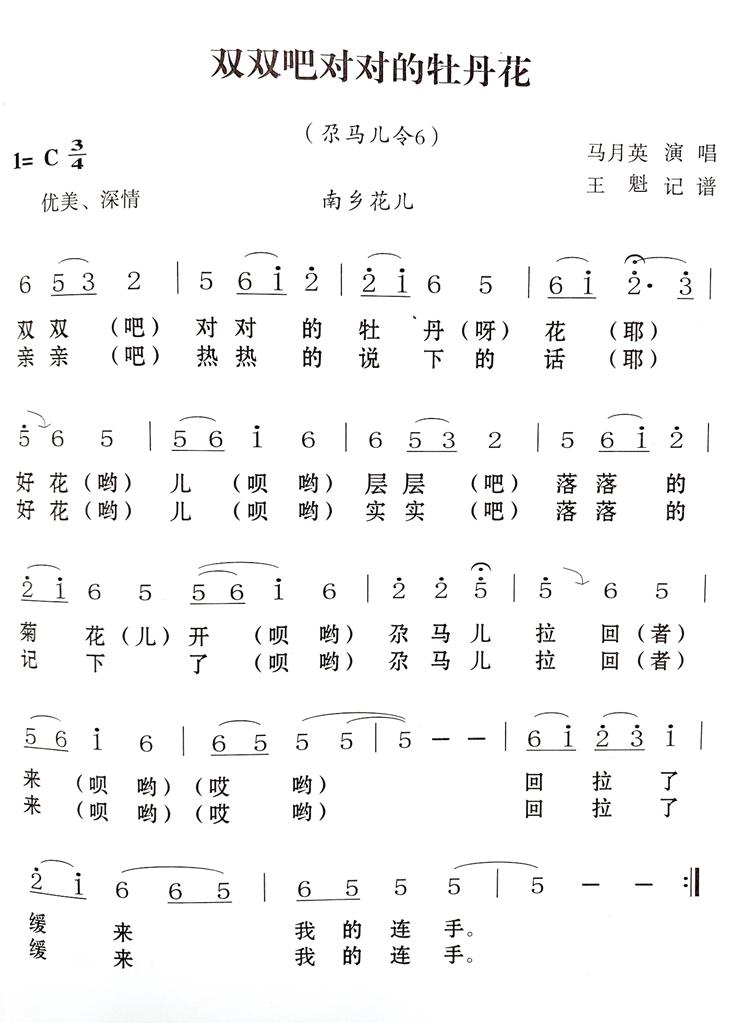 双双吧对对的牡丹花
（尕马儿令6）
1= C 3/4
马月英 演 唱
王 魁 记 谱
优美、深情
南乡花儿
6 5 3 2 | 5 6 i̇ 2̇ | 2̇ i̇ 6 5 | 6 i̇ 2̇· 3̇ |
双双（吧）对对的牡丹（呀）花（耶）
亲亲（吧）热热的说下的话（耶）
5̇ 6 5 | 5 6 i̇ 6 | 6 5 3 2 | 5 6 i̇ 2̇ |
好花（哟）儿（呗哟）层层（吧）落落的
好花（哟）儿（呗哟）实实（吧）落落的
2̇ i̇ 6 5 | 5 6 i̇ 6 | 2̇ 2̇ 5̇ | 5̇ 6 5 |
菊花（儿）开（呗哟）尕马儿拉回（者）
记下了（呗哟）尕马儿拉回（者）
5 6 i̇ 6 | 6 5 5 5 | 5 － － | 6 i̇ 2̇ 3̇ i̇ |
来（呗哟）（哎哟）回拉了
来（呗哟）（哎哟）回拉了
2̇ i̇ 6 6 5 | 6 5 5 5 | 5 － － :‖
缓来我的连手。
缓来我的连手。